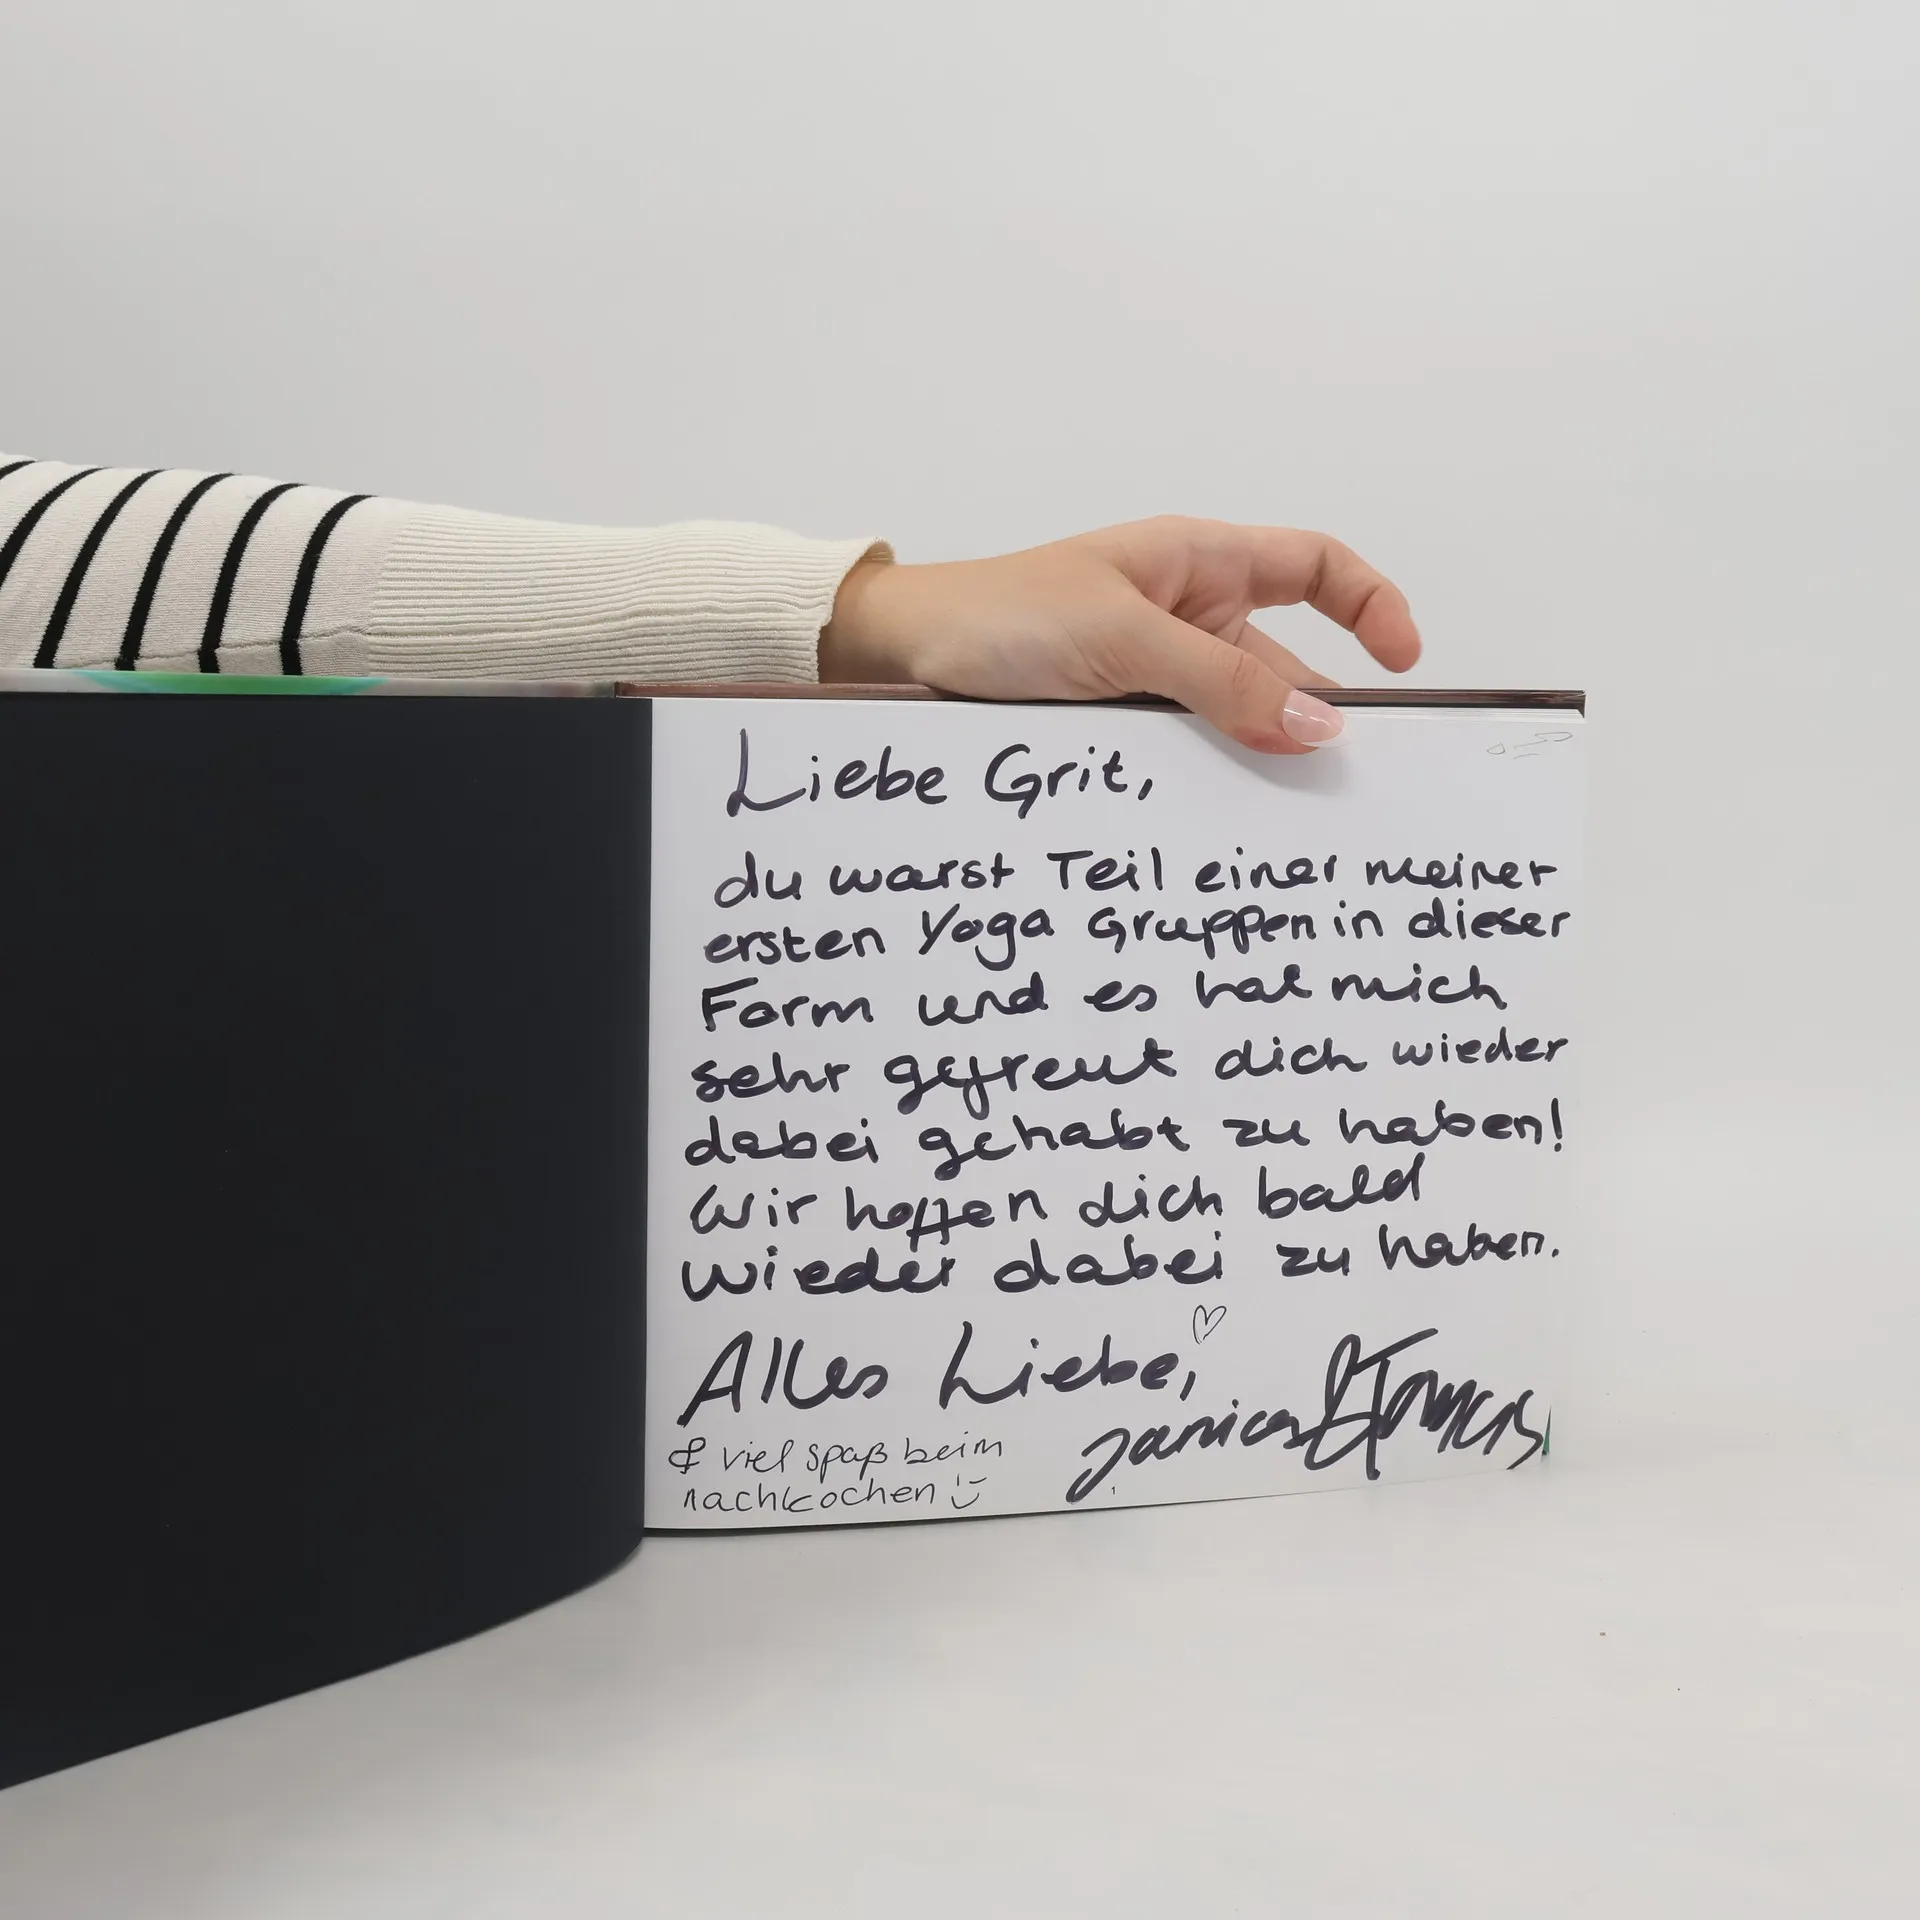 Liebe Grit,
du warst Teil einer meiner
ersten Yoga Gruppen in dieser
Form und es hat mich
sehr gefreut dich wieder
dabei gehabt zu haben!
Wir hoffen dich bald
wieder dabei zu haben.
Alles Liebe,
Janica & Tomas
& viel spaß beim
nachkochen
1